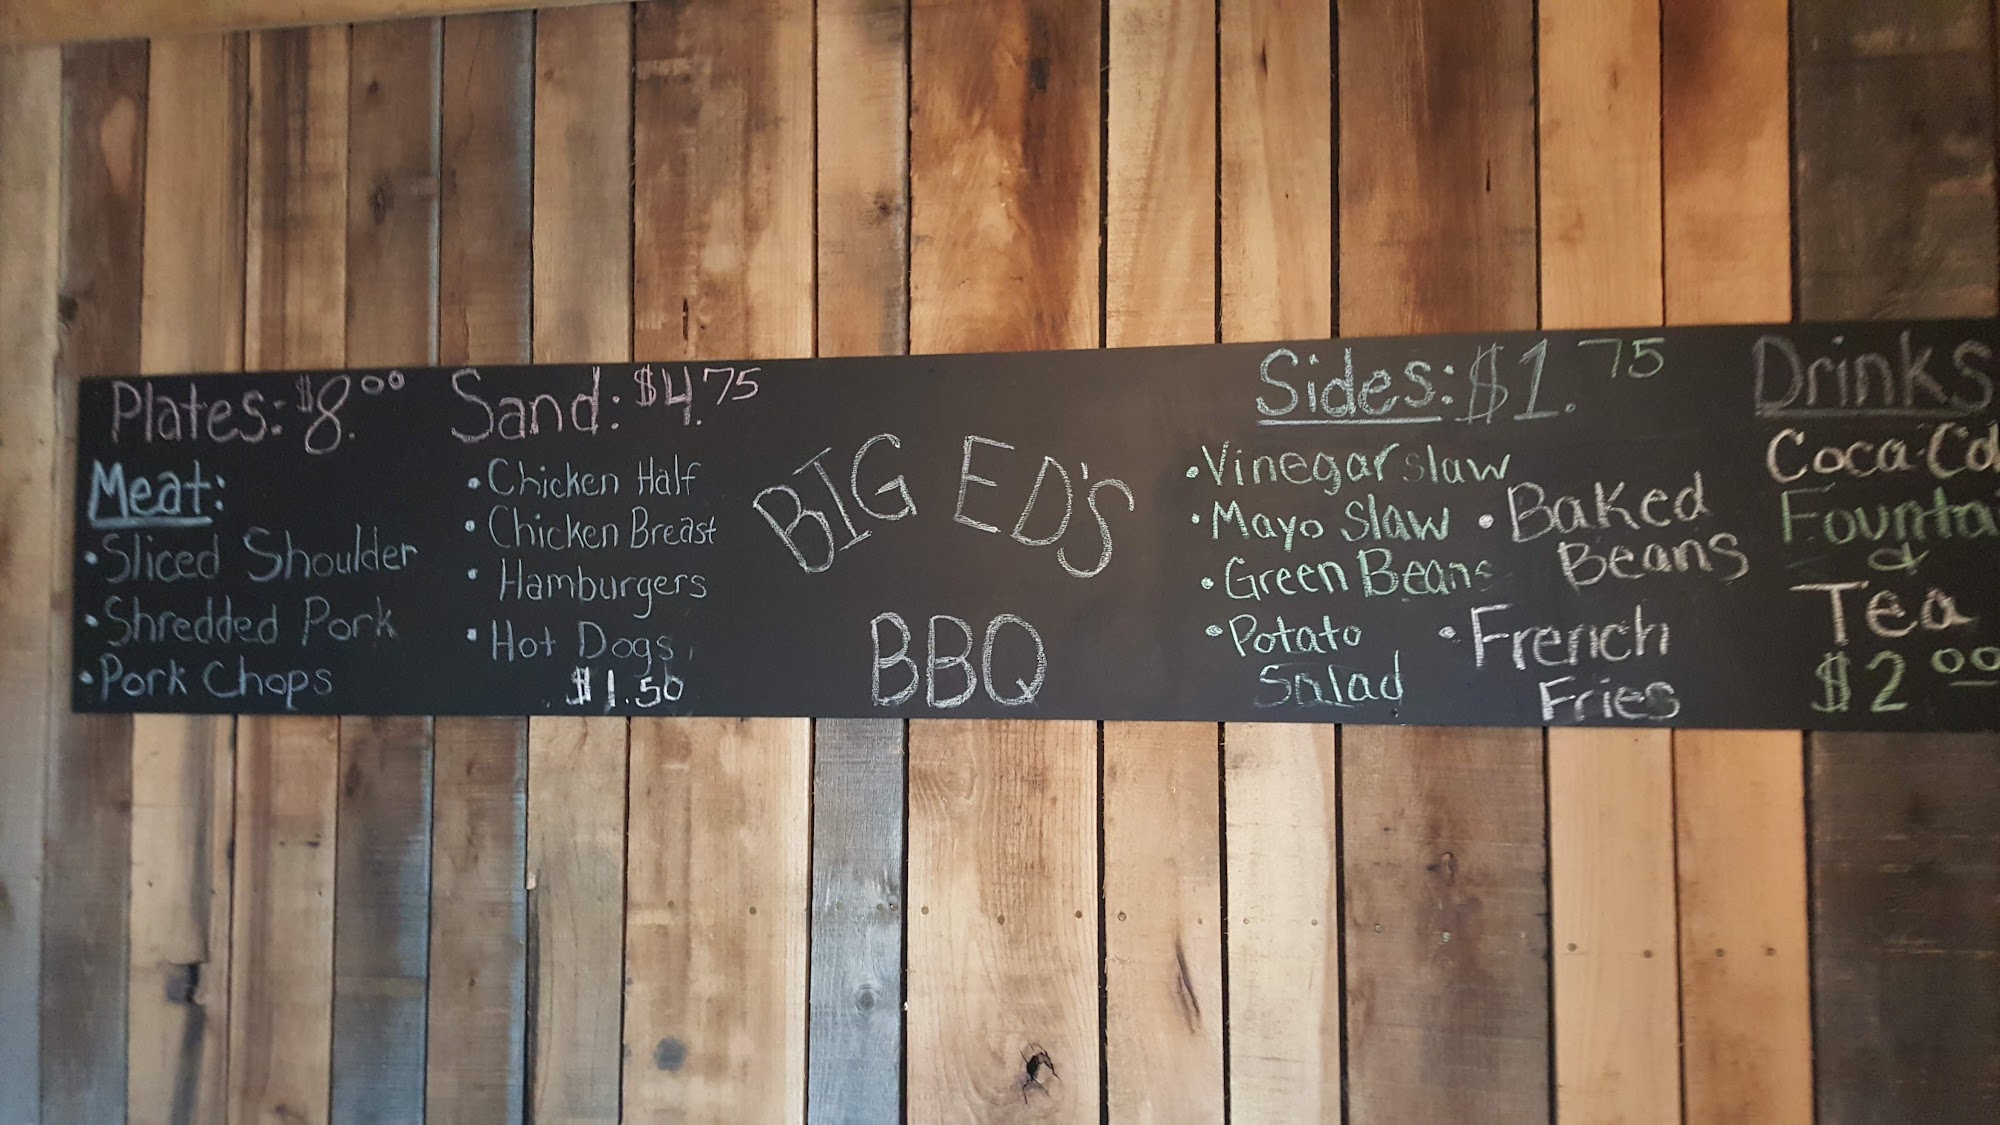 Plates: $8.00
Sand: $4.75
Meat:
• Sliced Shoulder
• Shredded Pork
• Pork Chops
• Chicken Half
• Chicken Breast
• Hamburgers
• Hot Dogs
$1.50
BIG ED'S
BBQ
Sides: $1.75
• Vinegar slaw
• Mayo Slaw
• Green Beans
• Potato
Salad
• Baked
Beans
• French
Fries
Drinks
Coca-Col
Fountai
&
Tea
$2.00